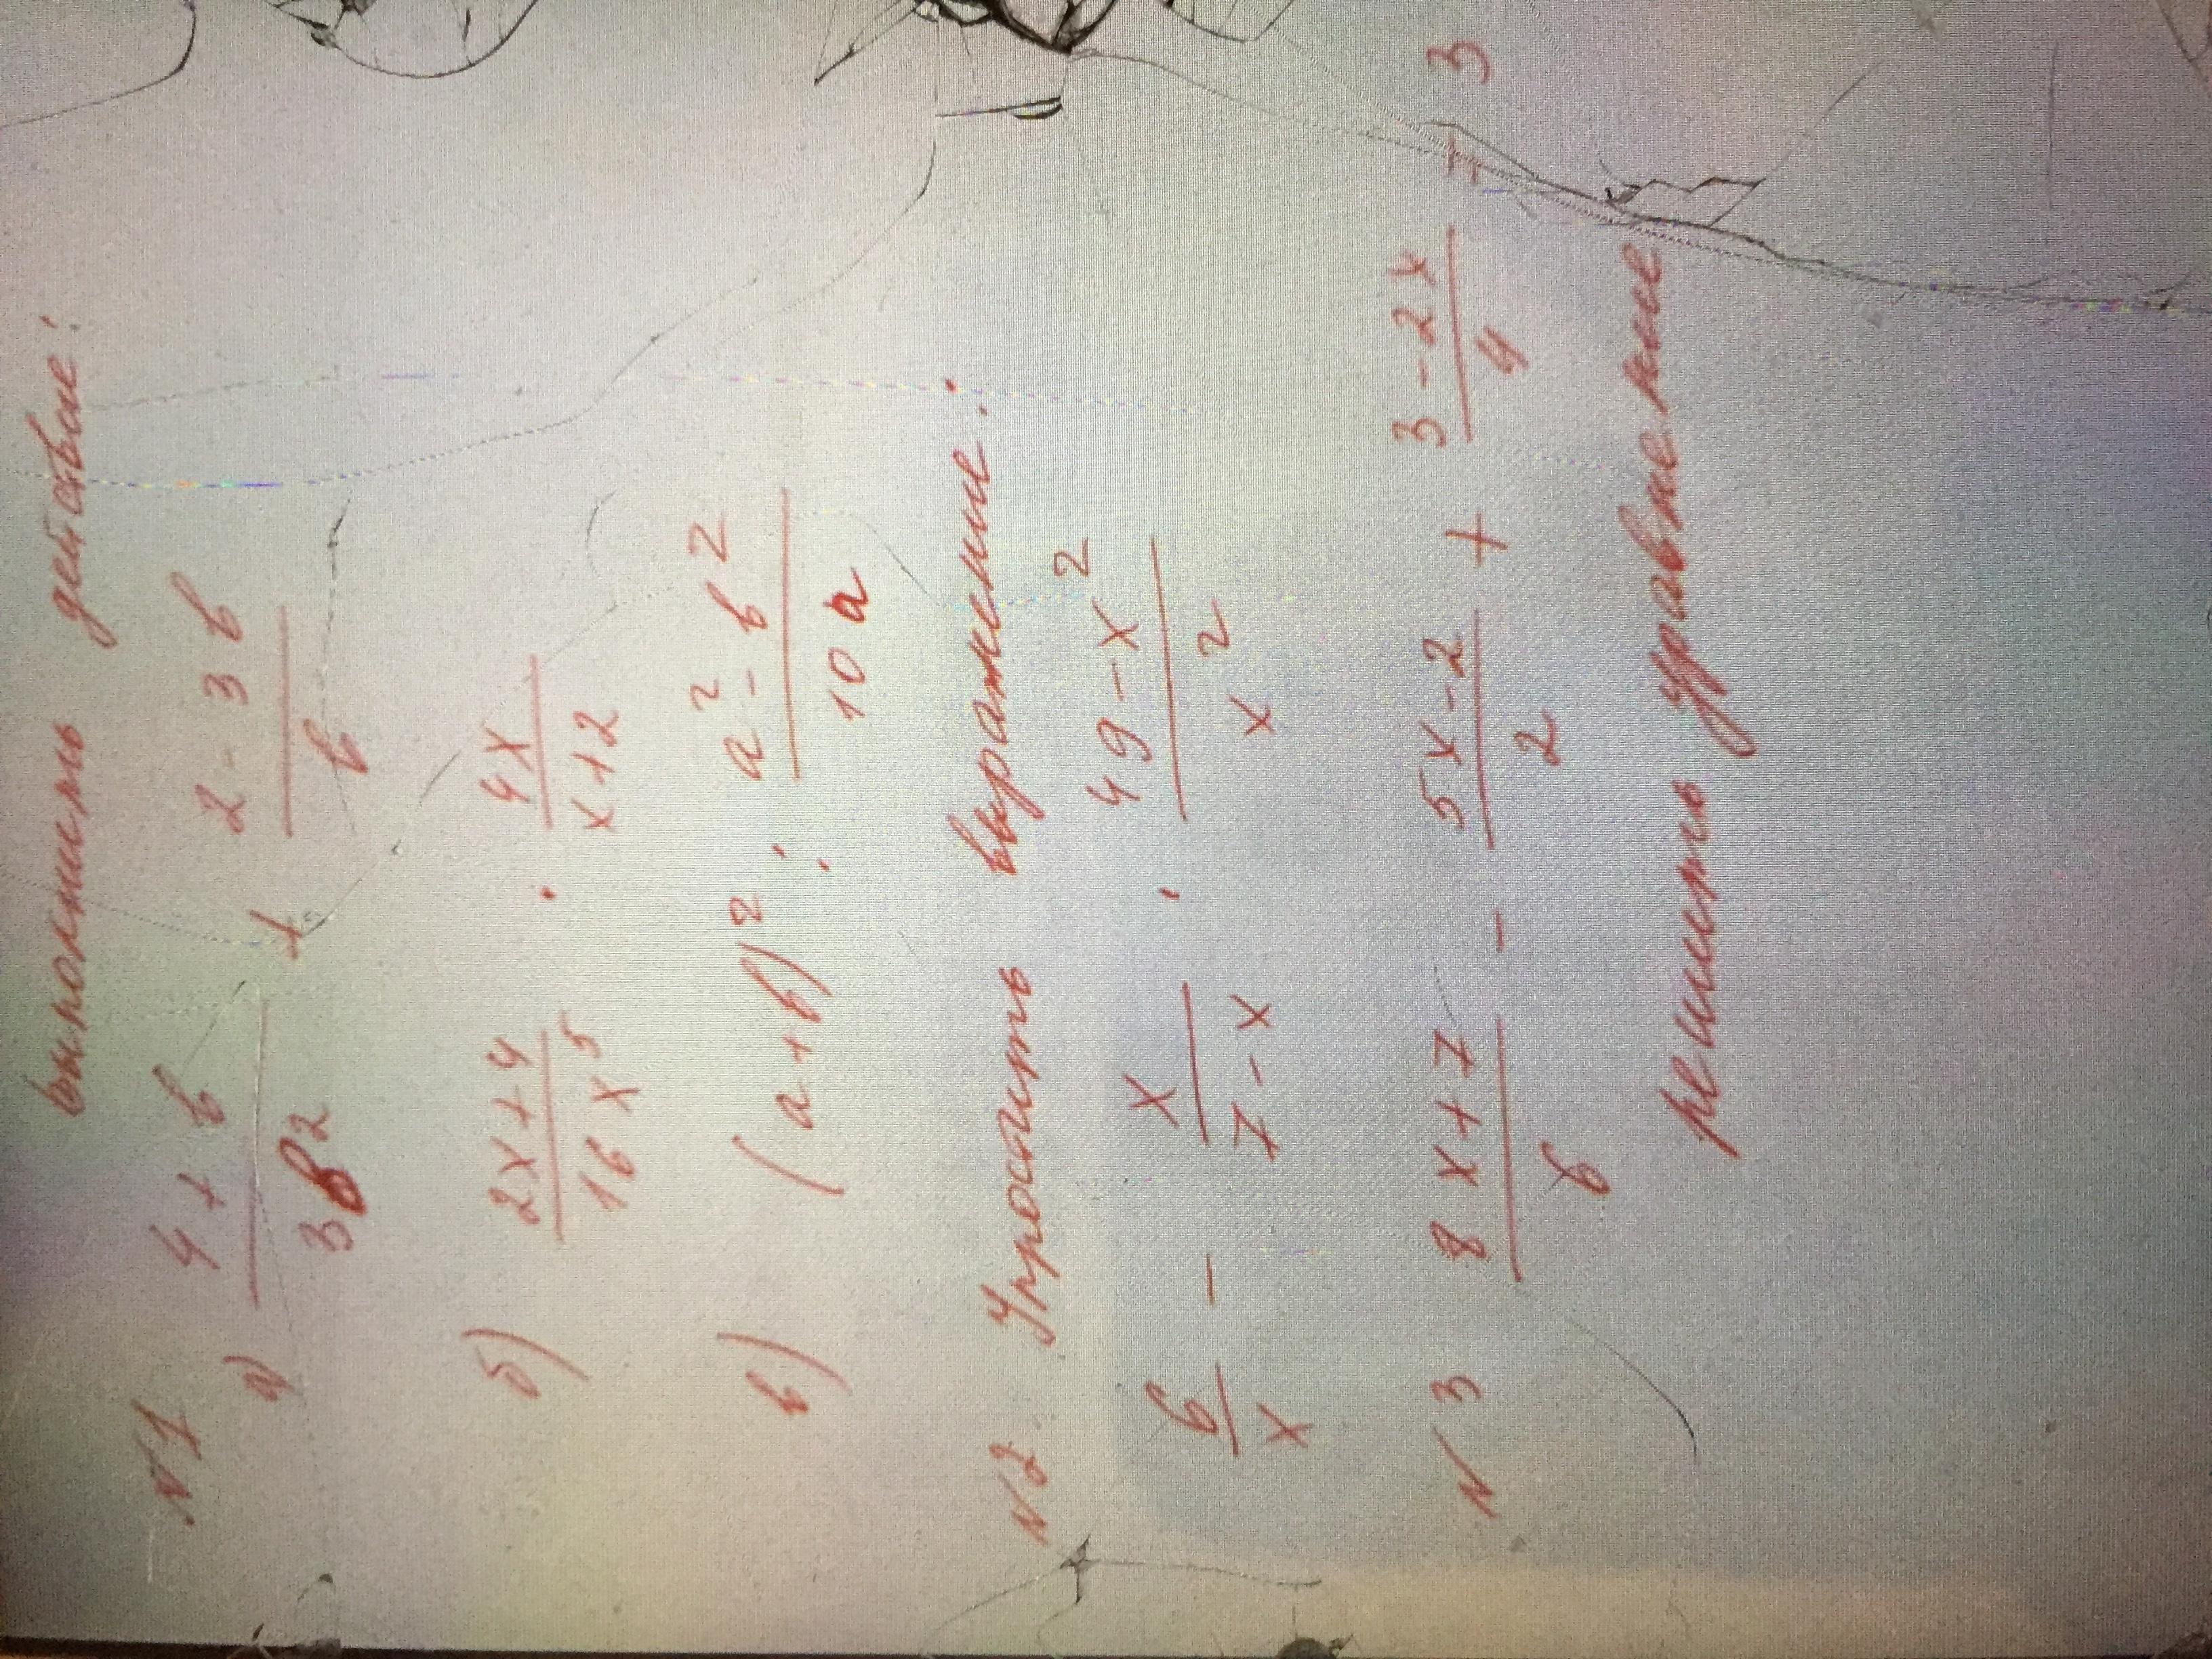 выполнить действие:
N1
а) (4 + b)/(3b²) + (2 - 3b)/b
б) (2x+4)/(16x⁵) · 4x/(x+2)
в) (a+b)² : (a² - b²)/(10a)
N2 Упростить выражение:
6/x - x/(7-x) · (49-x²)/x²
N3 (8x+7)/6 - (5x-2)/2 + (3-2x)/4 = 3
решить уравнение